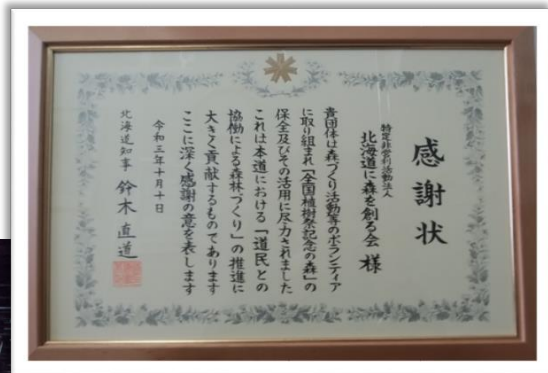 感謝状
特定非営利活動法人
北海道に森を創る会 様
貴団体は森づくり活動等のボランティア
に取り組まれ「全国植樹祭記念の森」の
保全及びその活用に尽力されました
これは本道における「道民との
協働による森林づくり」の推進に
大きく貢献するものであります
ここに深く感謝の意を表します
令和三年十月十日
北海道知事 鈴木直道